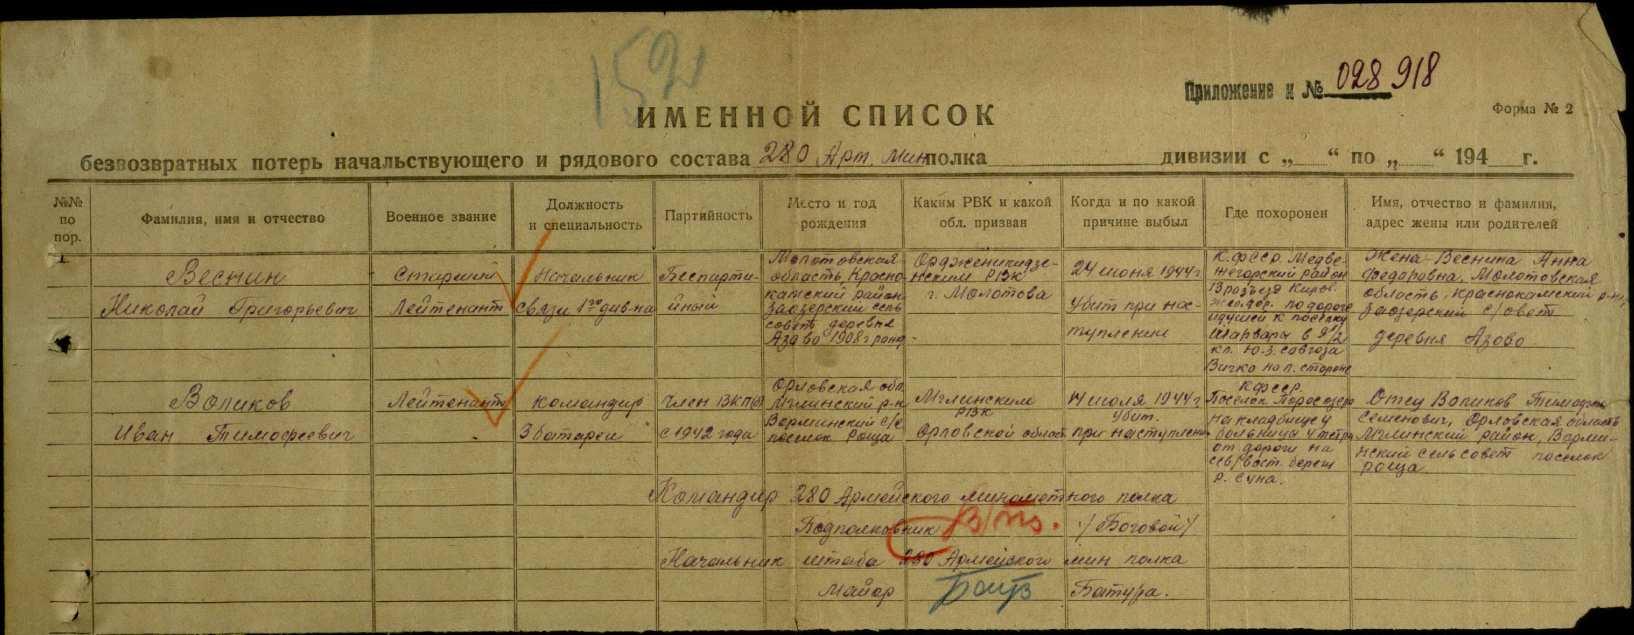 152
Приложение к № 028918
ИМЕННОЙ СПИСОК
Форма № 2
безвозвратных потерь начальствующего и рядового состава 280 Арт. Мин полка дивизии с „ “ по „ “ 194 г.
№№ по пор.
Фамилия, имя и отчество
Военное звание
Должность и специальность
Партийность
Место и год рождения
Каким РВК и какой обл. призван
Когда и по какой причине выбыл
Где похоронен
Имя, отчество и фамилия, адрес жены или родителей
Веснин
Николай Григорьевич
Старший
Лейтенант
Начальник
Связи 1го див-на
Беспарти-
йный
Молотовская
область, Красно-
камский район
Заозерский сель
совет деревня
Азово 1908г рожд
Орджоникидзе-
нским РВК
г. Молотова
24 июня 1944 г
Убит при нас-
туплении
К.ФССР. Медве-
жегорский район
идущей к посёлку
кл. Ю.З. совхоза
Вичка на п. стороне
Жена - Веснина Анна
Федоровна, Молотовская
область, Краснокамский р-н,
Заозерский с/совет
деревня Азово
Воликов
Иван Тимофеевич
Лейтенант
командир
3 батареи
Член ВКП(б)
с 1942 года
Орловская обл.
Мглинский р-н
Ворминский с/с
поселок Роща
Мглинским
РВК
Орловской област
14 июля 1944 г
Убит.
при наступлени
КФССР.
Поселок Поросозеро
на кладбище у
больницы 4 метра
от дороги на
сев/вост. берег
р. Суна.
Отец Воликов Тимофей
Семенович, Орловская область
Мглинский район, Ворми-
нский сельсовет поселок
роща
Командир 280 Армейского минометного полка
Подполковник /Боговой/
Начальник штаба 280 Армейского мин полка
Майор Батура.